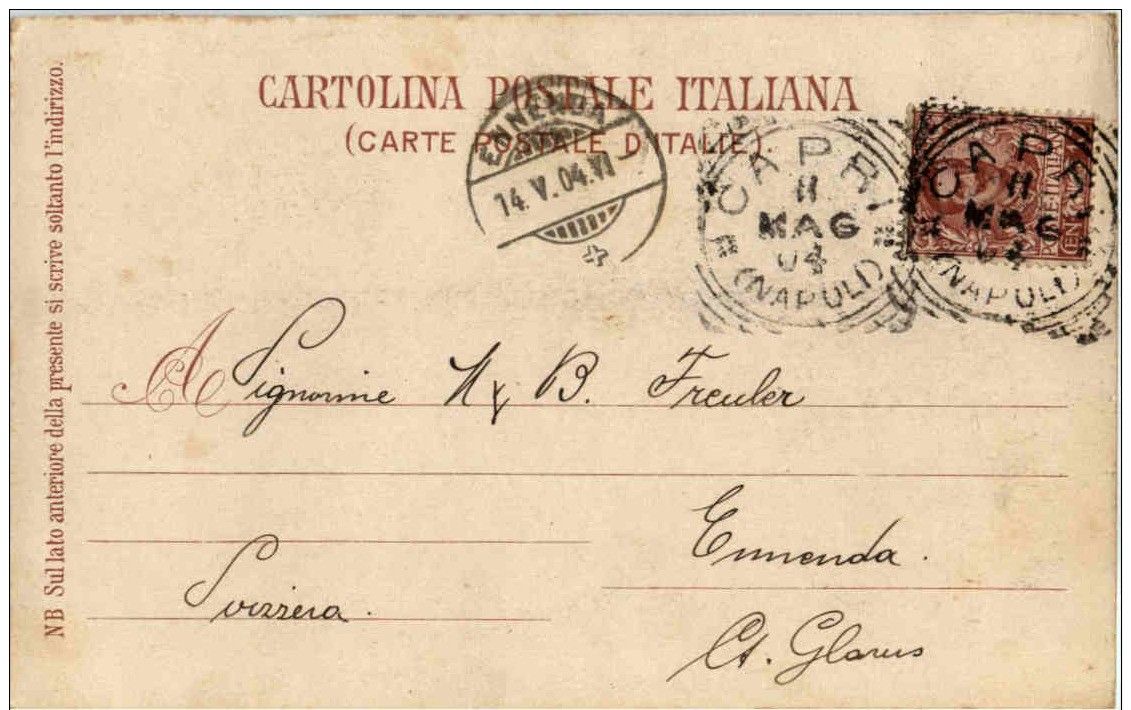 CARTOLINA POSTALE ITALIANA
(CARTE POSTALE D'ITALIE).
NB Sul lato anteriore della presente si scrive soltanto l'indirizzo.
ENNENDA
14.V.04.VI
CAPRI
11
MAG
04
(NAPOLI)
CAPRI
11
MAG
04
(NAPOLI)
A Signorine M & B. Freuler
Ennenda.
Svizzera.
Ct. Glarus